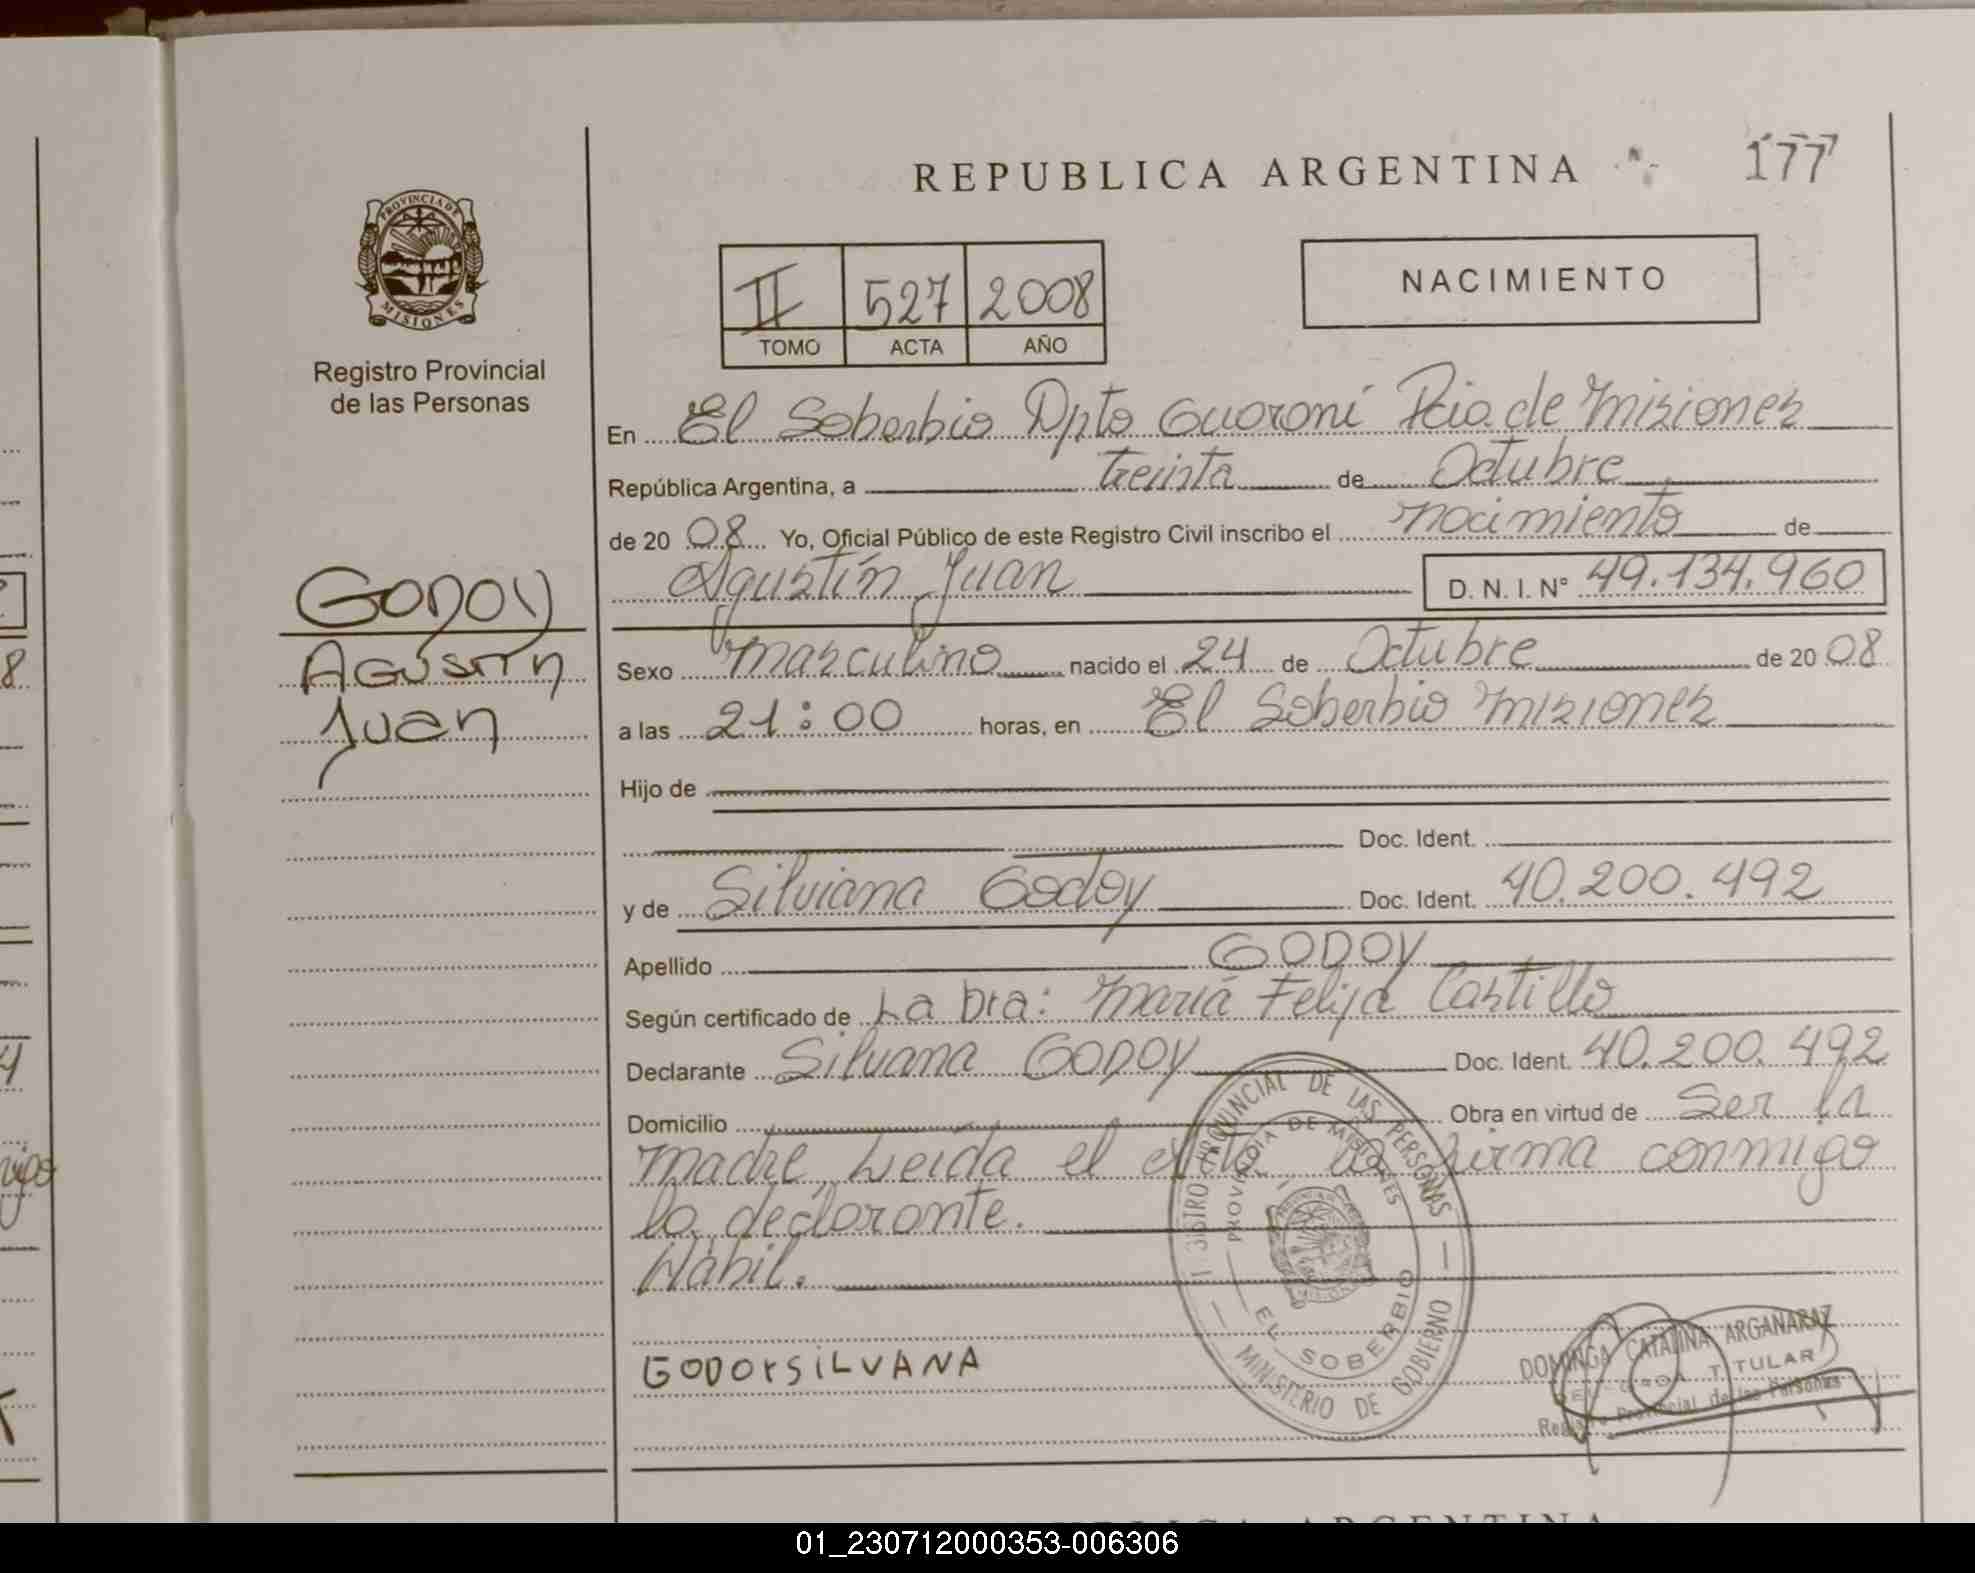 REPUBLICA ARGENTINA
177
PROVINCIA DE
MISIONES
Registro Provincial
de las Personas
NACIMIENTO
II 527 2008
TOMO ACTA AÑO
En El Soberbio Dpto Guaraní Pcia. de Misiones
República Argentina, a treinta de Octubre
de 20 08 Yo, Oficial Público de este Registro Civil inscribo el nacimiento de
Agustín Juan D. N. I. Nº 49.134.960
GODOY
AGUSTIN
Juan
Sexo masculino nacido el 24 de Octubre de 20 08
a las 21:00 horas, en El Soberbio Misiones
Hijo de
Doc. Ident.
y de Silviana Godoy Doc. Ident. 40.200.492
Apellido GODOY
Según certificado de La Dra: María Felisa Castillo
Declarante Silvana GODOY Doc. Ident. 40.200.492
Domicilio Obra en virtud de Ser la
madre, Leída el acta, la firma conmigo
la declarante.
Hábil.
GODOY SILVANA
REGISTRO PROVINCIAL DE LAS PERSONAS
PROVINCIA DE MISIONES
EL SOBERBIO
MINISTERIO DE GOBIERNO
DOMINGA CATALINA ARGAÑARAZ
TITULAR
Registro Provincial de las Personas
01_230712000353-006306